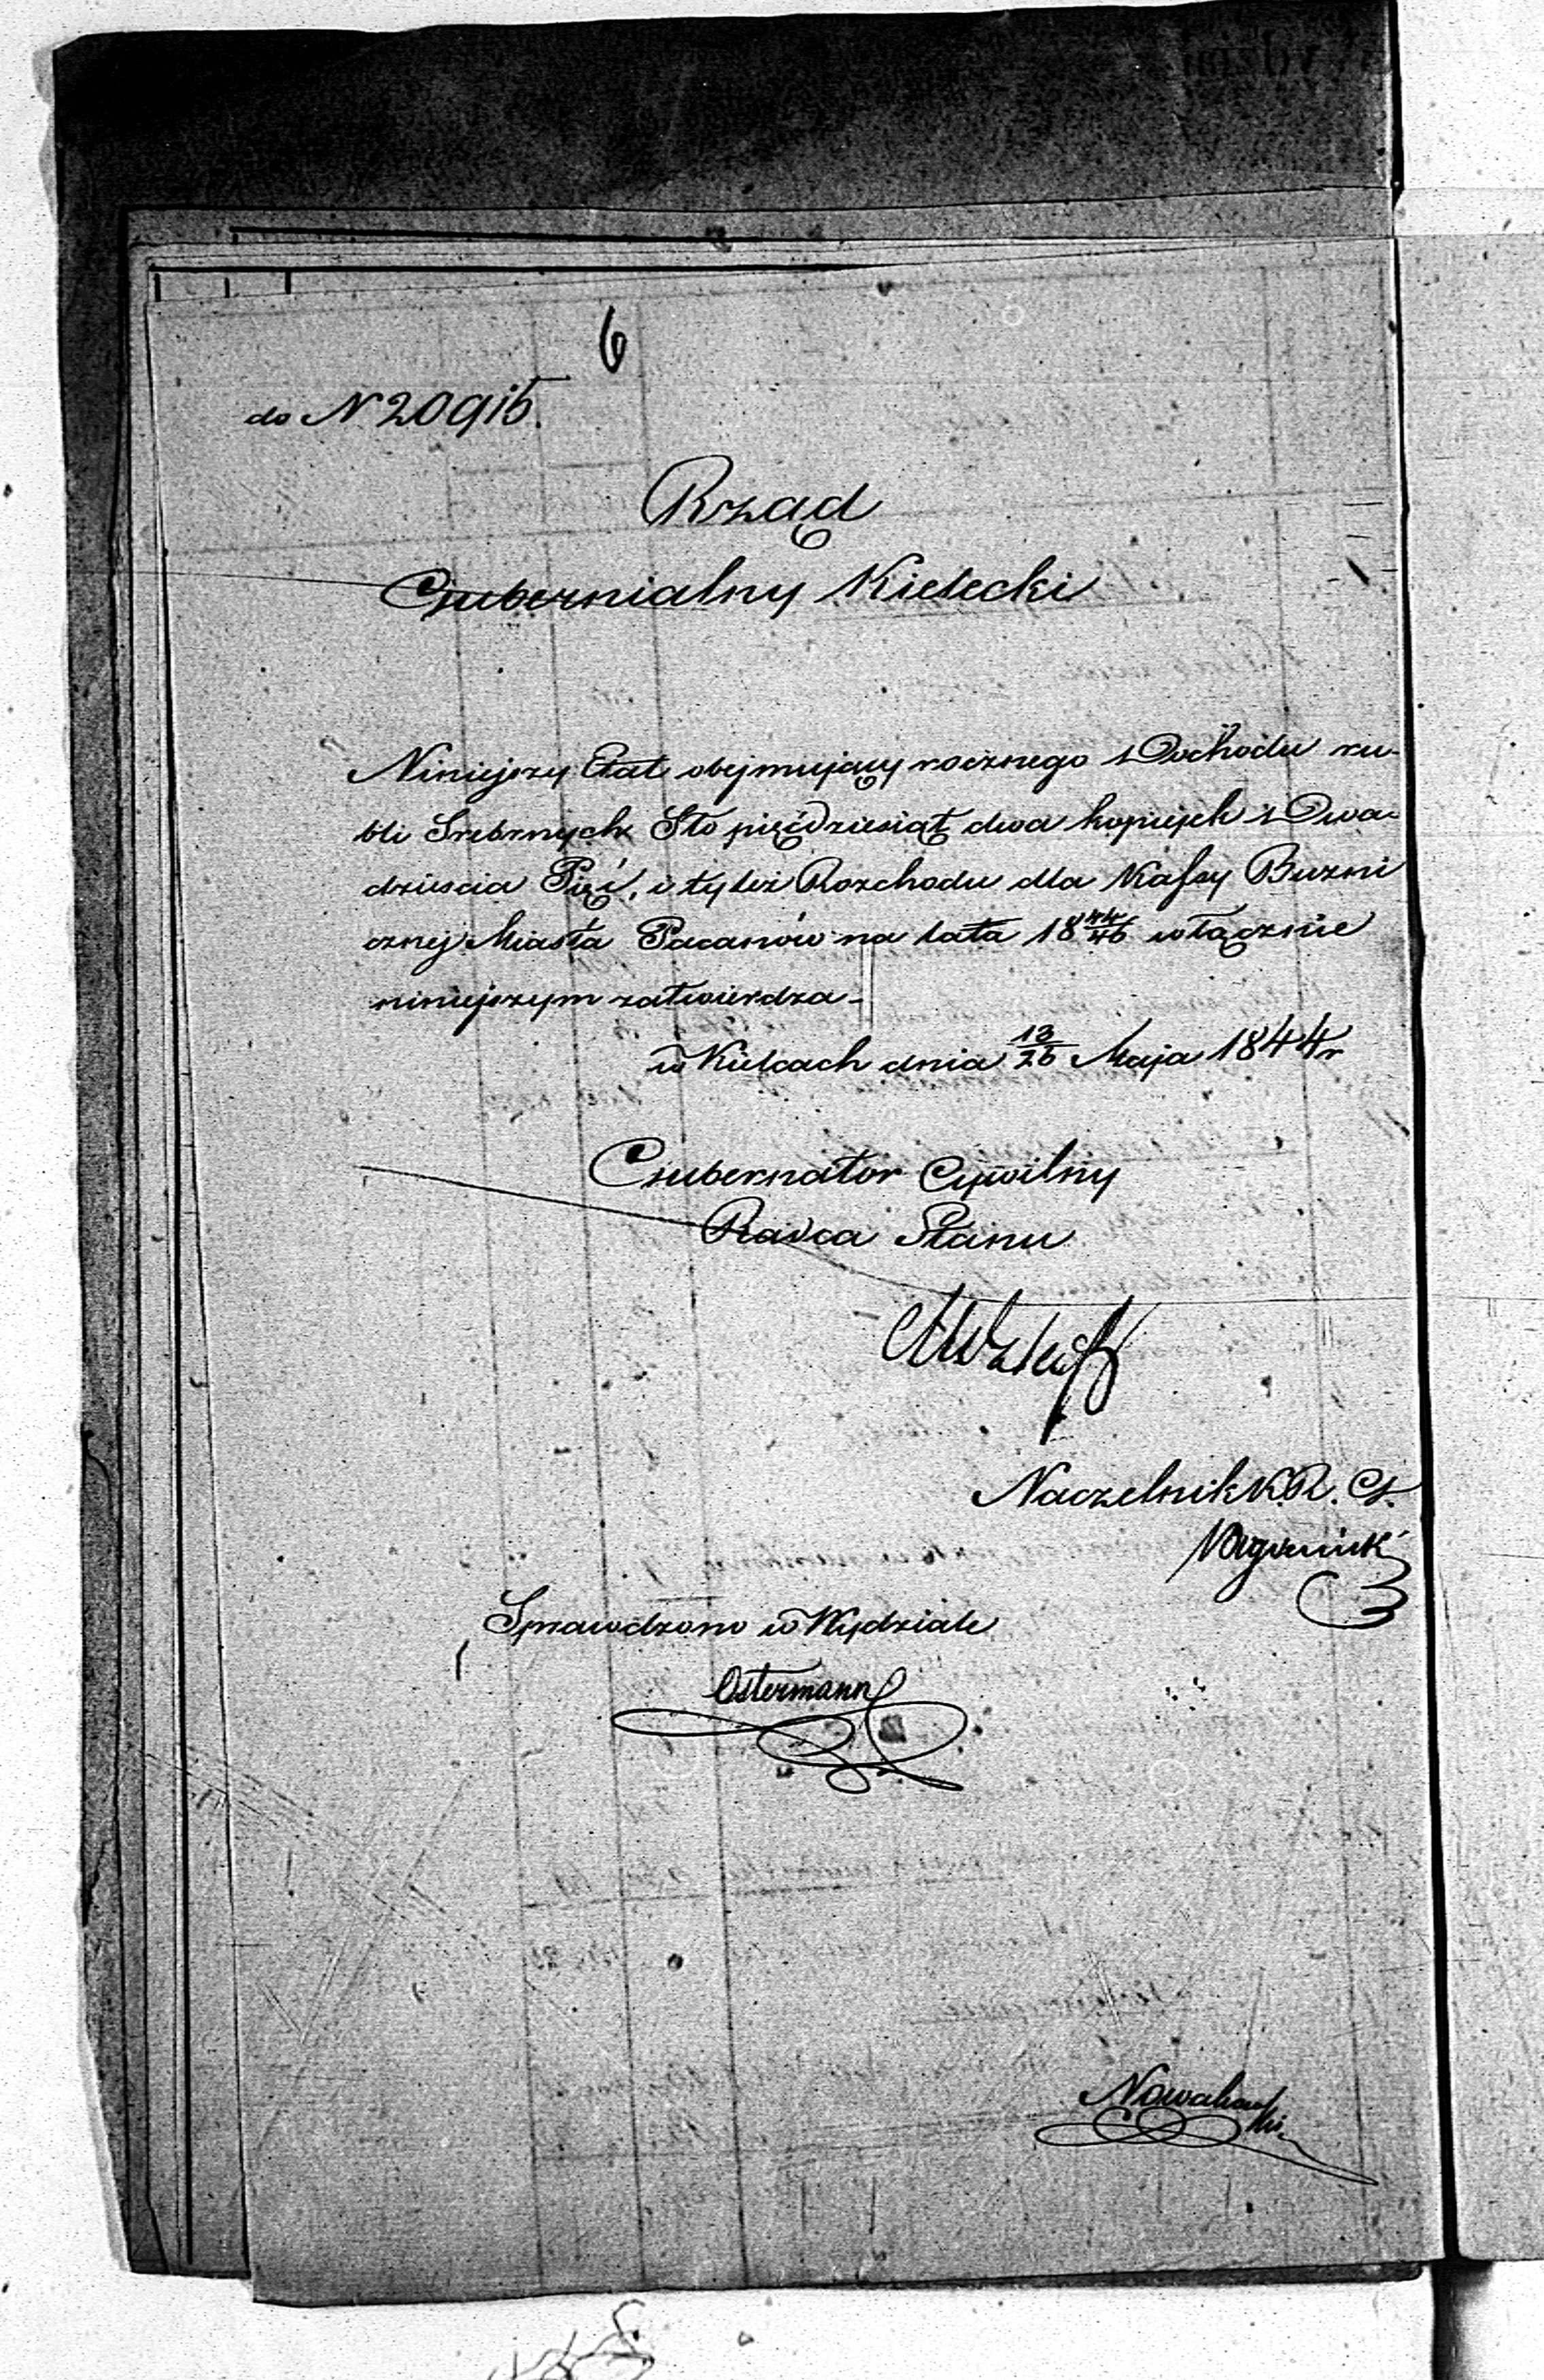 6
do N 20915.
Rząd
Gubernialny Kielecki
Niniejszy Etat obejmujący rocznego Dochodu ru-
bli Srebrnych Sto pięćdziesiąt dwa kopiejek Dwa-
dzieścia Pięć, i tyleż Rozchodu dla Kassy Buzni
cznej Miasta Pacanów na lata 18 44/46 włącznie
niniejszym zatwierdza -
w Kielcach dnia 13/25 Maja 1844 r
Gubernator Cywilny
Radca Stanu
Naczelnik K. R. G.
Sprawdzono w Wydziale
Ostermann
Nowakowski